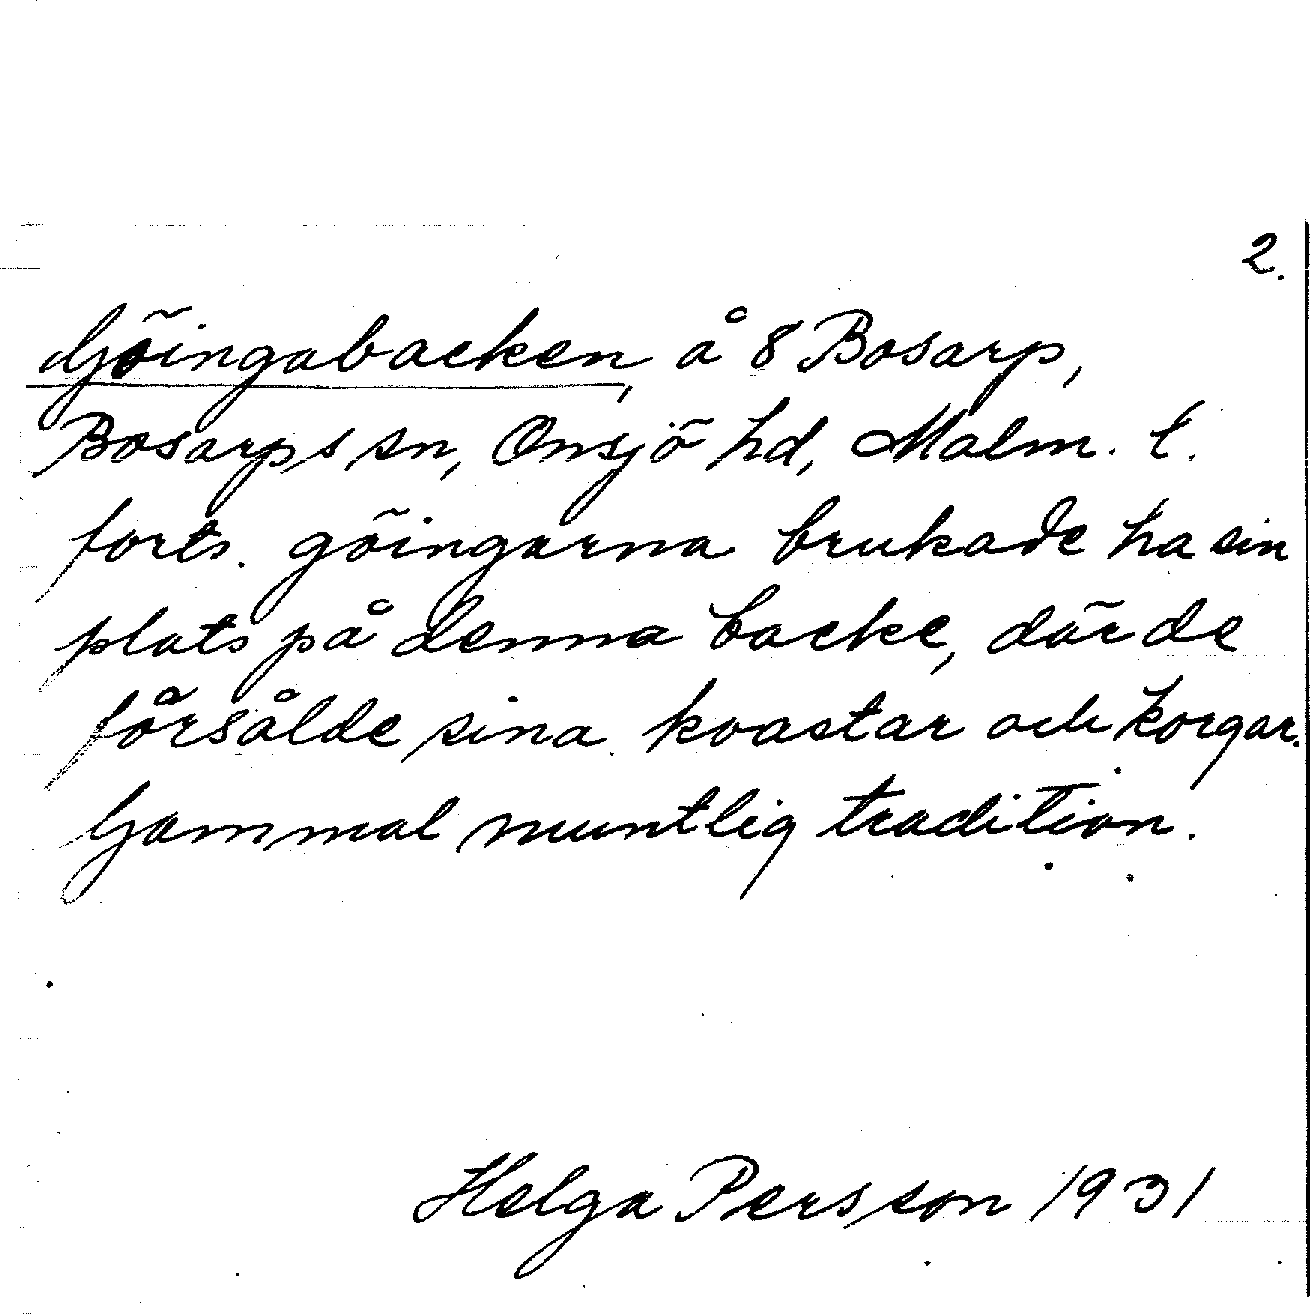 2.
Göingabacken, å 8 Bosarp,
Bosarps sn, Onsjö hd, Malm. l.
forts. göingarna brukade ha sin
plats på denna backe, där de
försålde sina kvastar och korgar.
Gammal muntlig tradition.
Helga Persson 1931